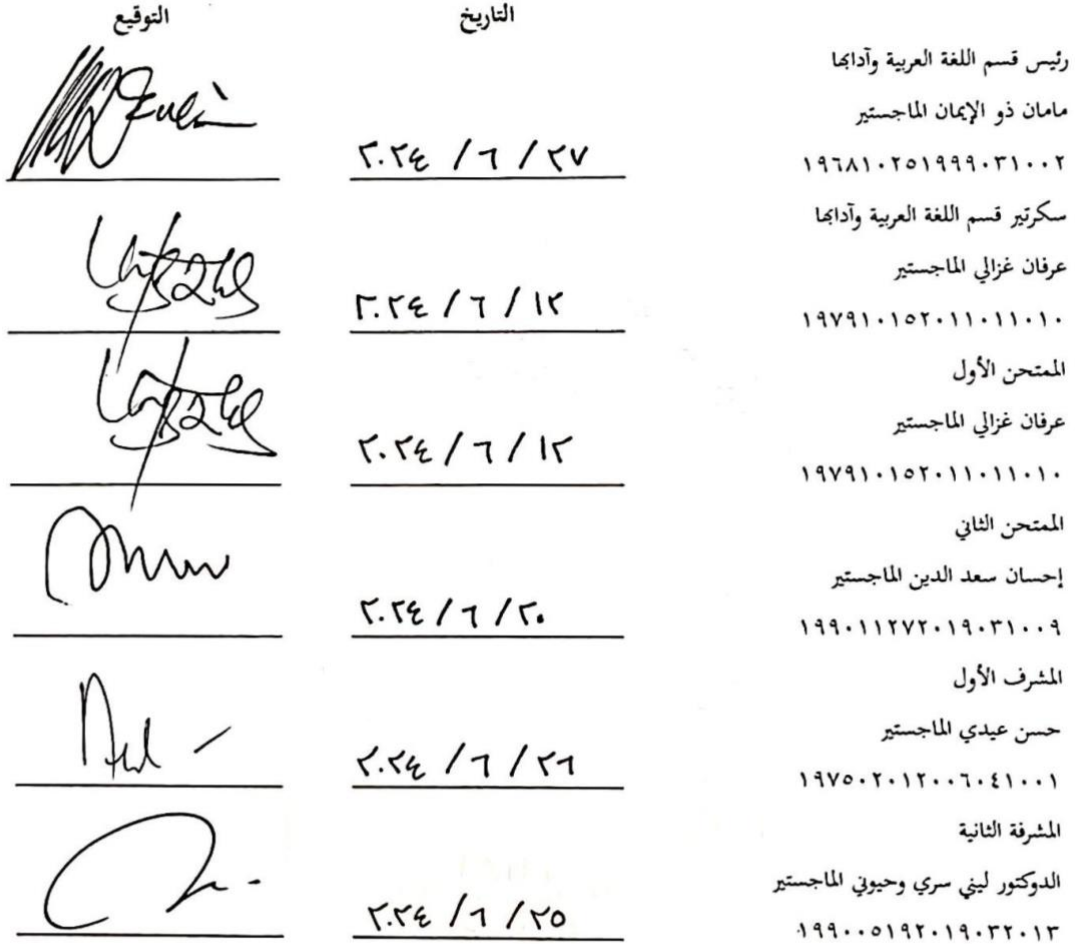 التاريخ التوقيع
رئيس قسم اللغة العربية وآدابها
مامان ذو الإيمان الماجستير
١٩٦٨١٠٢٥١٩٩٩٠٣١٠٠٢ ٢٧ / ٦ / ٢٠٢٤
سكرتير قسم اللغة العربية وآدابها
عرفان غزالي الماجستير
١٩٧٩١٠١٥٢٠١١٠١١٠١٠ ١٢ / ٦ / ٢٠٢٤
الممتحن الأول
عرفان غزالي الماجستير
١٩٧٩١٠١٥٢٠١١٠١١٠١٠ ١٢ / ٦ / ٢٠٢٤
الممتحن الثاني
إحسان سعد الدين الماجستير
١٩٩٠١١٢٧٢٠١٩٠٣١٠٠٩ ٢٠ / ٦ / ٢٠٢٤
المشرف الأول
حسن عيدي الماجستير
١٩٧٥٠٢٠١٢٠٠٦٠٤١٠٠١ ٢٦ / ٦ / ٢٠٢٤
المشرفة الثانية
الدوكتور ليني سري وحيوني الماجستير
١٩٩٠٠٥١٩٢٠١٩٠٣٢٠١٣ ٢٥ / ٦ / ٢٠٢٤